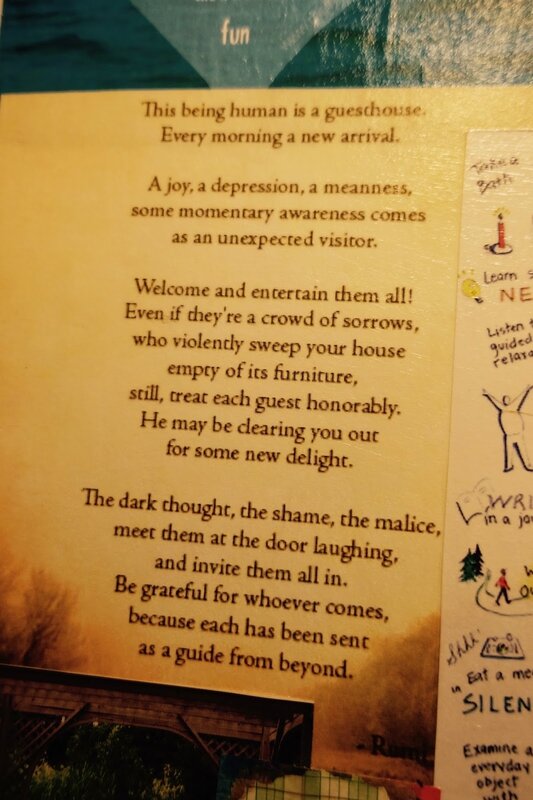 fun
This being human is a guesthouse.
Every morning a new arrival.
A joy, a depression, a meanness,
some momentary awareness comes
as an unexpected visitor.
Welcome and entertain them all!
Even if they're a crowd of sorrows,
who violently sweep your house
empty of its furniture,
still, treat each guest honorably.
He may be clearing you out
for some new delight.
The dark thought, the shame, the malice,
meet them at the door laughing,
and invite them all in.
Be grateful for whoever comes,
because each has been sent
as a guide from beyond.
- Rumi
Bath
Learn
NE
Listen
guided
relax
WRI
in a jo
Shhh!
Eat a me
in
SILEN
Examine a
everyday
object
with